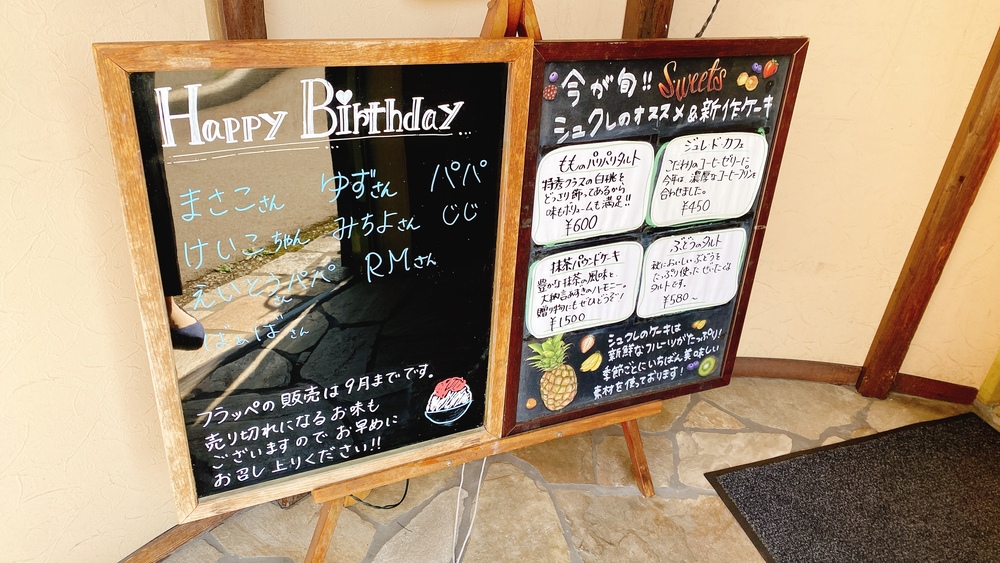 Happy Birthday...
まさこさん ゆずさん パパ
けいこちゃん みちよさん じじ
えいとくんパパ RMさん
ばぁばさん
フラッペの販売は9月までです。
売り切れになるお味も
ございますので お早めに
お召し上りください!!
今が旬!! Sweets
シュクレのオススメ&新作ケーキ
もものパリパリタルト
特秀クラスの白桃を
どっさり飾ってあるから
味もボリュームも満足!!
¥600
ジュレ・ド・カフェ
こだわりのコーヒーゼリーに
今年は 濃厚なコーヒープリンを
合わせました。
¥450
抹茶パウンドケーキ
豊かな抹茶の風味と、
大納言あずきのハーモニー。
贈り物にもぜひどうぞ!
¥1500
ぶどうのタルト
秋においしいぶどうを
たっぷり使ったぜいたくな
タルトです。
¥580~
シュクレのケーキは
新鮮なフルーツがたっぷり!
季節ごとにいちばん美味しい
素材を使っております!